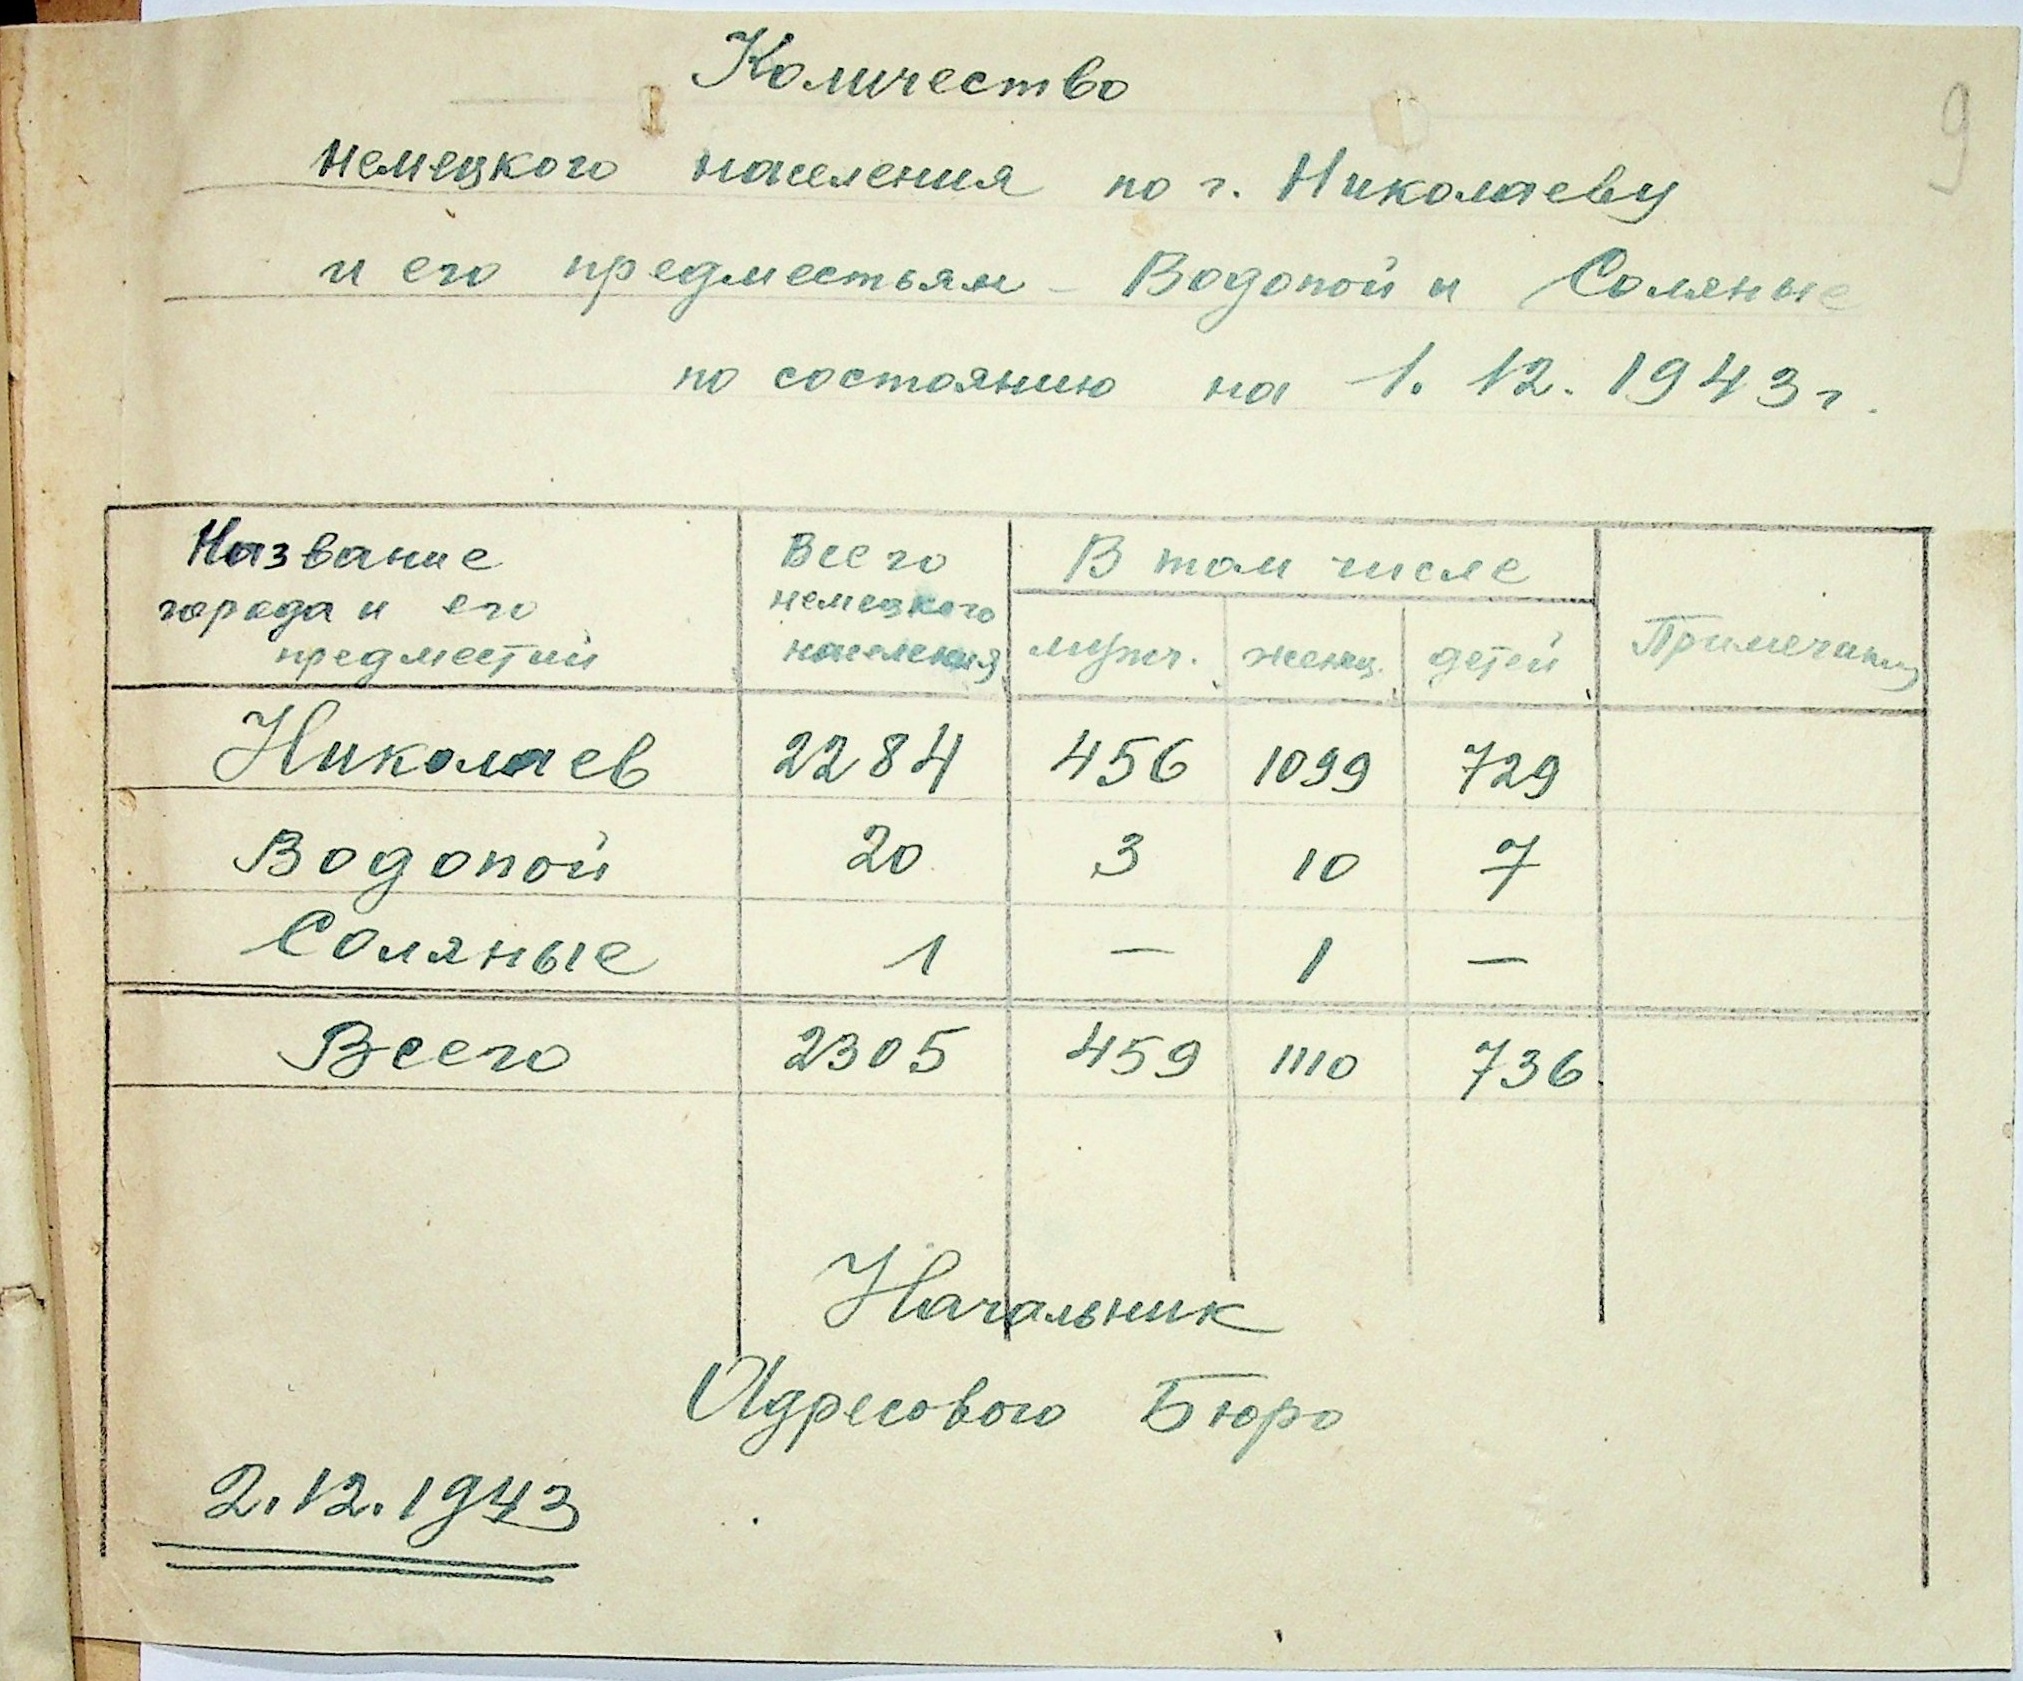 9
Количество
немецкого населения по г. Николаеву
и его предместьям – Водопой и Соляные
по состоянию на 1. 12. 1943 г.
Название города и его предместий
Всего немецкого населения
В том числе
мужч. женщ. детей
Примечания
Николаев 2284 456 1099 729
Водопой 20 3 10 7
Соляные 1 — 1 —
Всего 2305 459 1110 736
Начальник
Адресового Бюро
2.12.1943